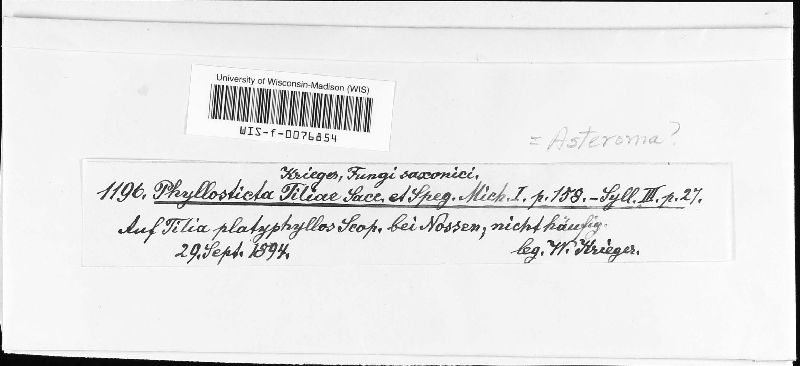 University of Wisconsin-Madison (WIS)
WIS-f-0076854
= Asteroma?
Krieger, Fungi saxonici.
1196. Phyllosticta Tiliae Sacc. et Speg. Mich. I. p. 158. - Syll. III. p. 27.
Auf Tilia platyphyllos Scop. bei Nossen, nicht häufig.
29. Sept. 1894. leg. W. Krieger.